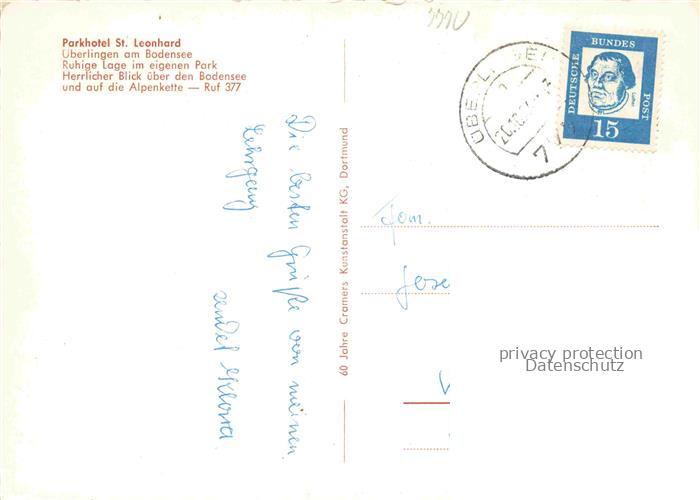 Parkhotel St. Leonhard
Überlingen am Bodensee
Ruhige Lage im eigenen Park
Herrlicher Blick über den Bodensee
und auf die Alpenkette — Ruf 377
Die besten Grüße von meinem
Lehrgang
sendet
60 Jahre Cramers Kunstanstalt KG, Dortmund
DEUTSCHE
BUNDES
POST
Luther
15
ÜBERL
20.10.
Fam.
Jose
privacy protection
Datenschutz